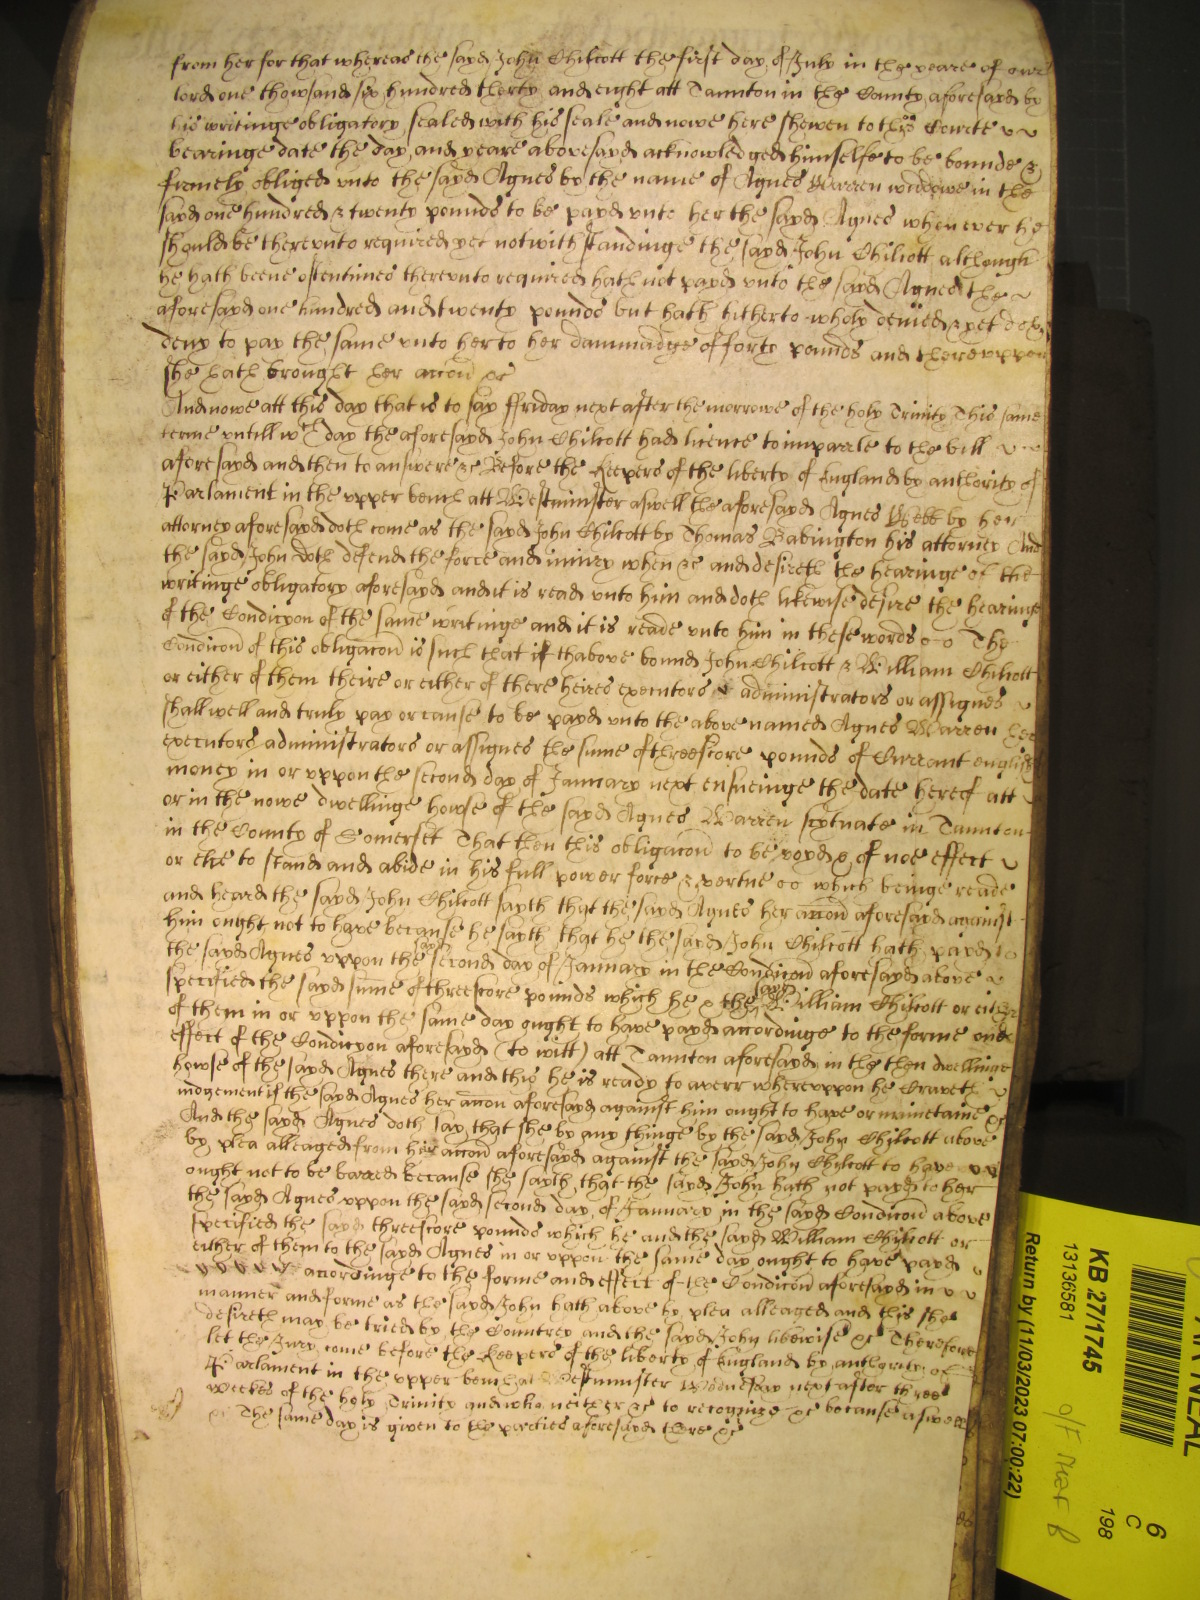 from her for that whereas the sayd John Chilcott the first day of July in the yeare of our
lord one thowsand six hundred therty and eight att Taunton in the County aforesayd by
his writinge obligatory sealed with his seale and nowe here shewen to the Courte
bearinge date the day and yeare abovesayd acknowledged himselfe to be bounde &
firmely obliged unto the sayd Agnes by the name of Agnes Warren widdowe in the
sayd one hundred & twenty pounds to be payd unto her the sayd Agnes when ever he
should be thereunto required yet notwithstandinge the sayd John Chilcott although
he hath beene oftentimes thereunto required hath not payd unto the sayd Agnes the
aforesayd one hundred and twenty pounds but hath hitherto wholy denied & yet doth
deny to pay the same unto her to her dammadge of forty pounds and thereuppon
she hath brought her accon &c
And nowe att this day that is to say ffriday next after the morrowe of the holy Trinity this same
terme untill wch day the aforesayd John Chilcott had licence to imparle to the bill
aforesayd and then to answere &c Before the Keepers of the liberty of England by authority of
Parlament in the upper bench att Westminster aswell the aforesayd Agnes Webb by her
attorney aforesayd doth come as the sayd John Chilcott by Thomas Babington his attorney And
the sayd John doth defend the force and iniury when &c and desireth the hearinge of the
writinge obligatory aforesayd and it is read unto him and doth likewise desire the hearinge
of the Condicyon of the same writinge and it is reade unto him in these words The
Condicon of this obligacon is such that if thabove bound John Chilcott & William Chilcott
or either of them theire or either of there heires executors administrators or assignes
shall well and truly pay or cause to be payd unto the above named Agnes Warren her
executors administrators or assignes the sume of threescore pounds of Currant english
money in or uppon the second day of January next ensueinge the date hereof att
or in the nowe dwellinge howse of the sayd Agnes Warren scytuate in Taunton
in the County of Somerset That then this obligacon to be voyd & of noe effect
or else to stand and abide in his full power force & vertue which beinge reade
and heard the sayd John Chilcott sayth that the sayd Agnes her accon aforesayd against
him ought not to have because he sayth that he the sayd John Chilcott hath payd to
the sayd Agnes uppon the sayd second day of January in the Condicon aforesayd above
specified the sayd sume of threescore pounds which he & the sayd William Chilcott or either
of them in or uppon the same day ought to have payd accordinge to the forme and
effect of the Condicyon aforesayd (to witt) att Taunton aforesayd in the then dwellinge
howse of the sayd Agnes there and this he is ready to averr whereuppon he Craveth
iudgement if the sayd Agnes her accon aforesayd against him ought to have or mainetaine &c
And the sayd Agnes doth say that she by any thinge by the sayd John Chilcott above
by plea alleaged from her accon aforesayd against the sayd John Chilcott to have
ought not to be barred because she sayth that the sayd John hath not payd to her
the sayd Agnes uppon the sayd second day of January in the sayd Condicon above
specified the sayd threescore pounds which he and the sayd William Chilcott or
either of them to the sayd Agnes in or uppon the same day ought to have payd
accordinge to the forme and effect of the Condicon aforesayd in
manner and forme as the sayd John hath above by plea alleaged and this she
desireth may be tried by the Countrey and the sayd John likewise &c Therefore
let the Jury come before the Keepers of the liberty of England by authority of
Parlament in the upper bench at Westminster Wednesday next after three
weekes of the holy Trinity and who neither &c to recognize &c because aswell
&c The same day is given to the parties aforesayd there &c
KB 27/1745
13136581
Return by (11/03/2023 07:00:22)
198
6
C